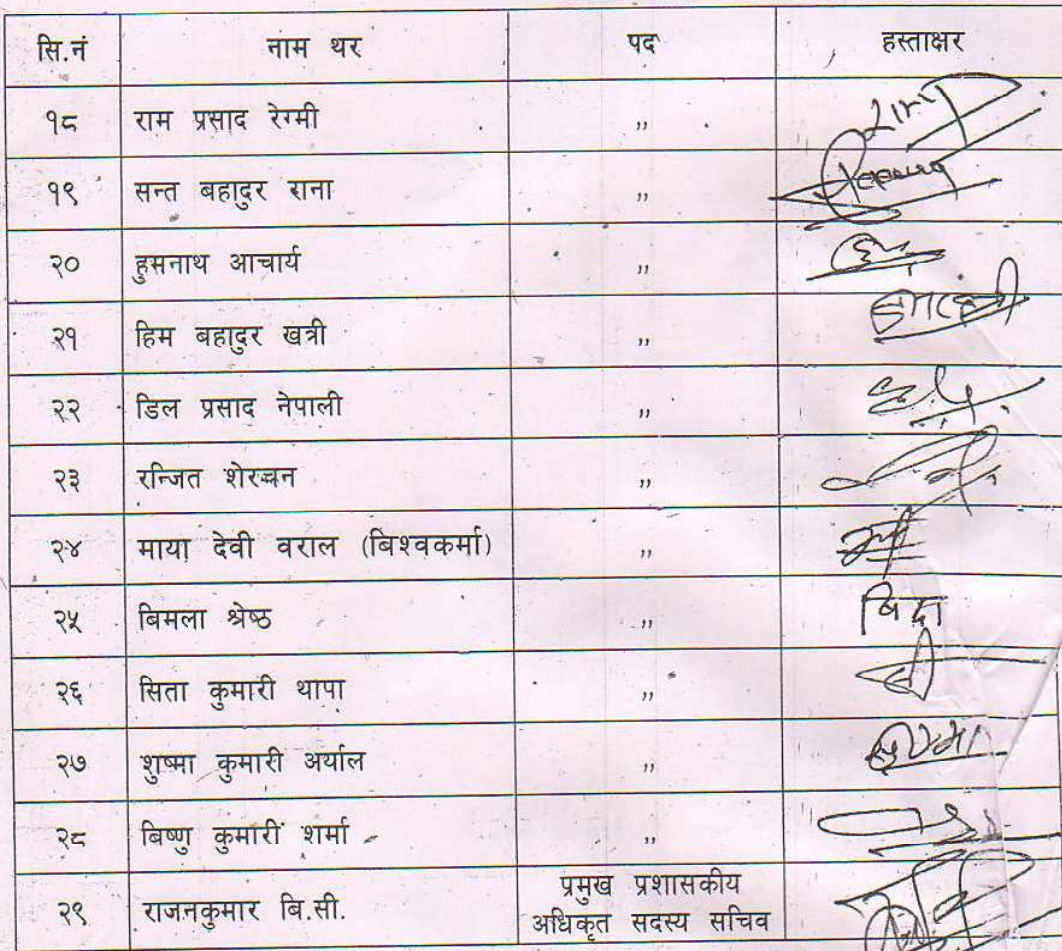 सि.नं नाम थर पद हस्ताक्षर
१८ राम प्रसाद रेग्मी ,, राम
१९ सन्त बहादुर राना ,,
२० हुमनाथ आचार्य ,,
२१ हिम बहादुर खत्री ,,
२२ डिल प्रसाद नेपाली ,,
२३ रन्जित शेरचन ,,
२४ माया देवी वराल (बिश्वकर्मा) ,,
२५ बिमला श्रेष्ठ ,,
२६ सिता कुमारी थापा ,,
२७ शुष्मा कुमारी अर्याल ,,
२८ बिष्णु कुमारी शर्मा ,,
२९ राजनकुमार बि.सी. प्रमुख प्रशासकीय
अधिकृत सदस्य सचिव